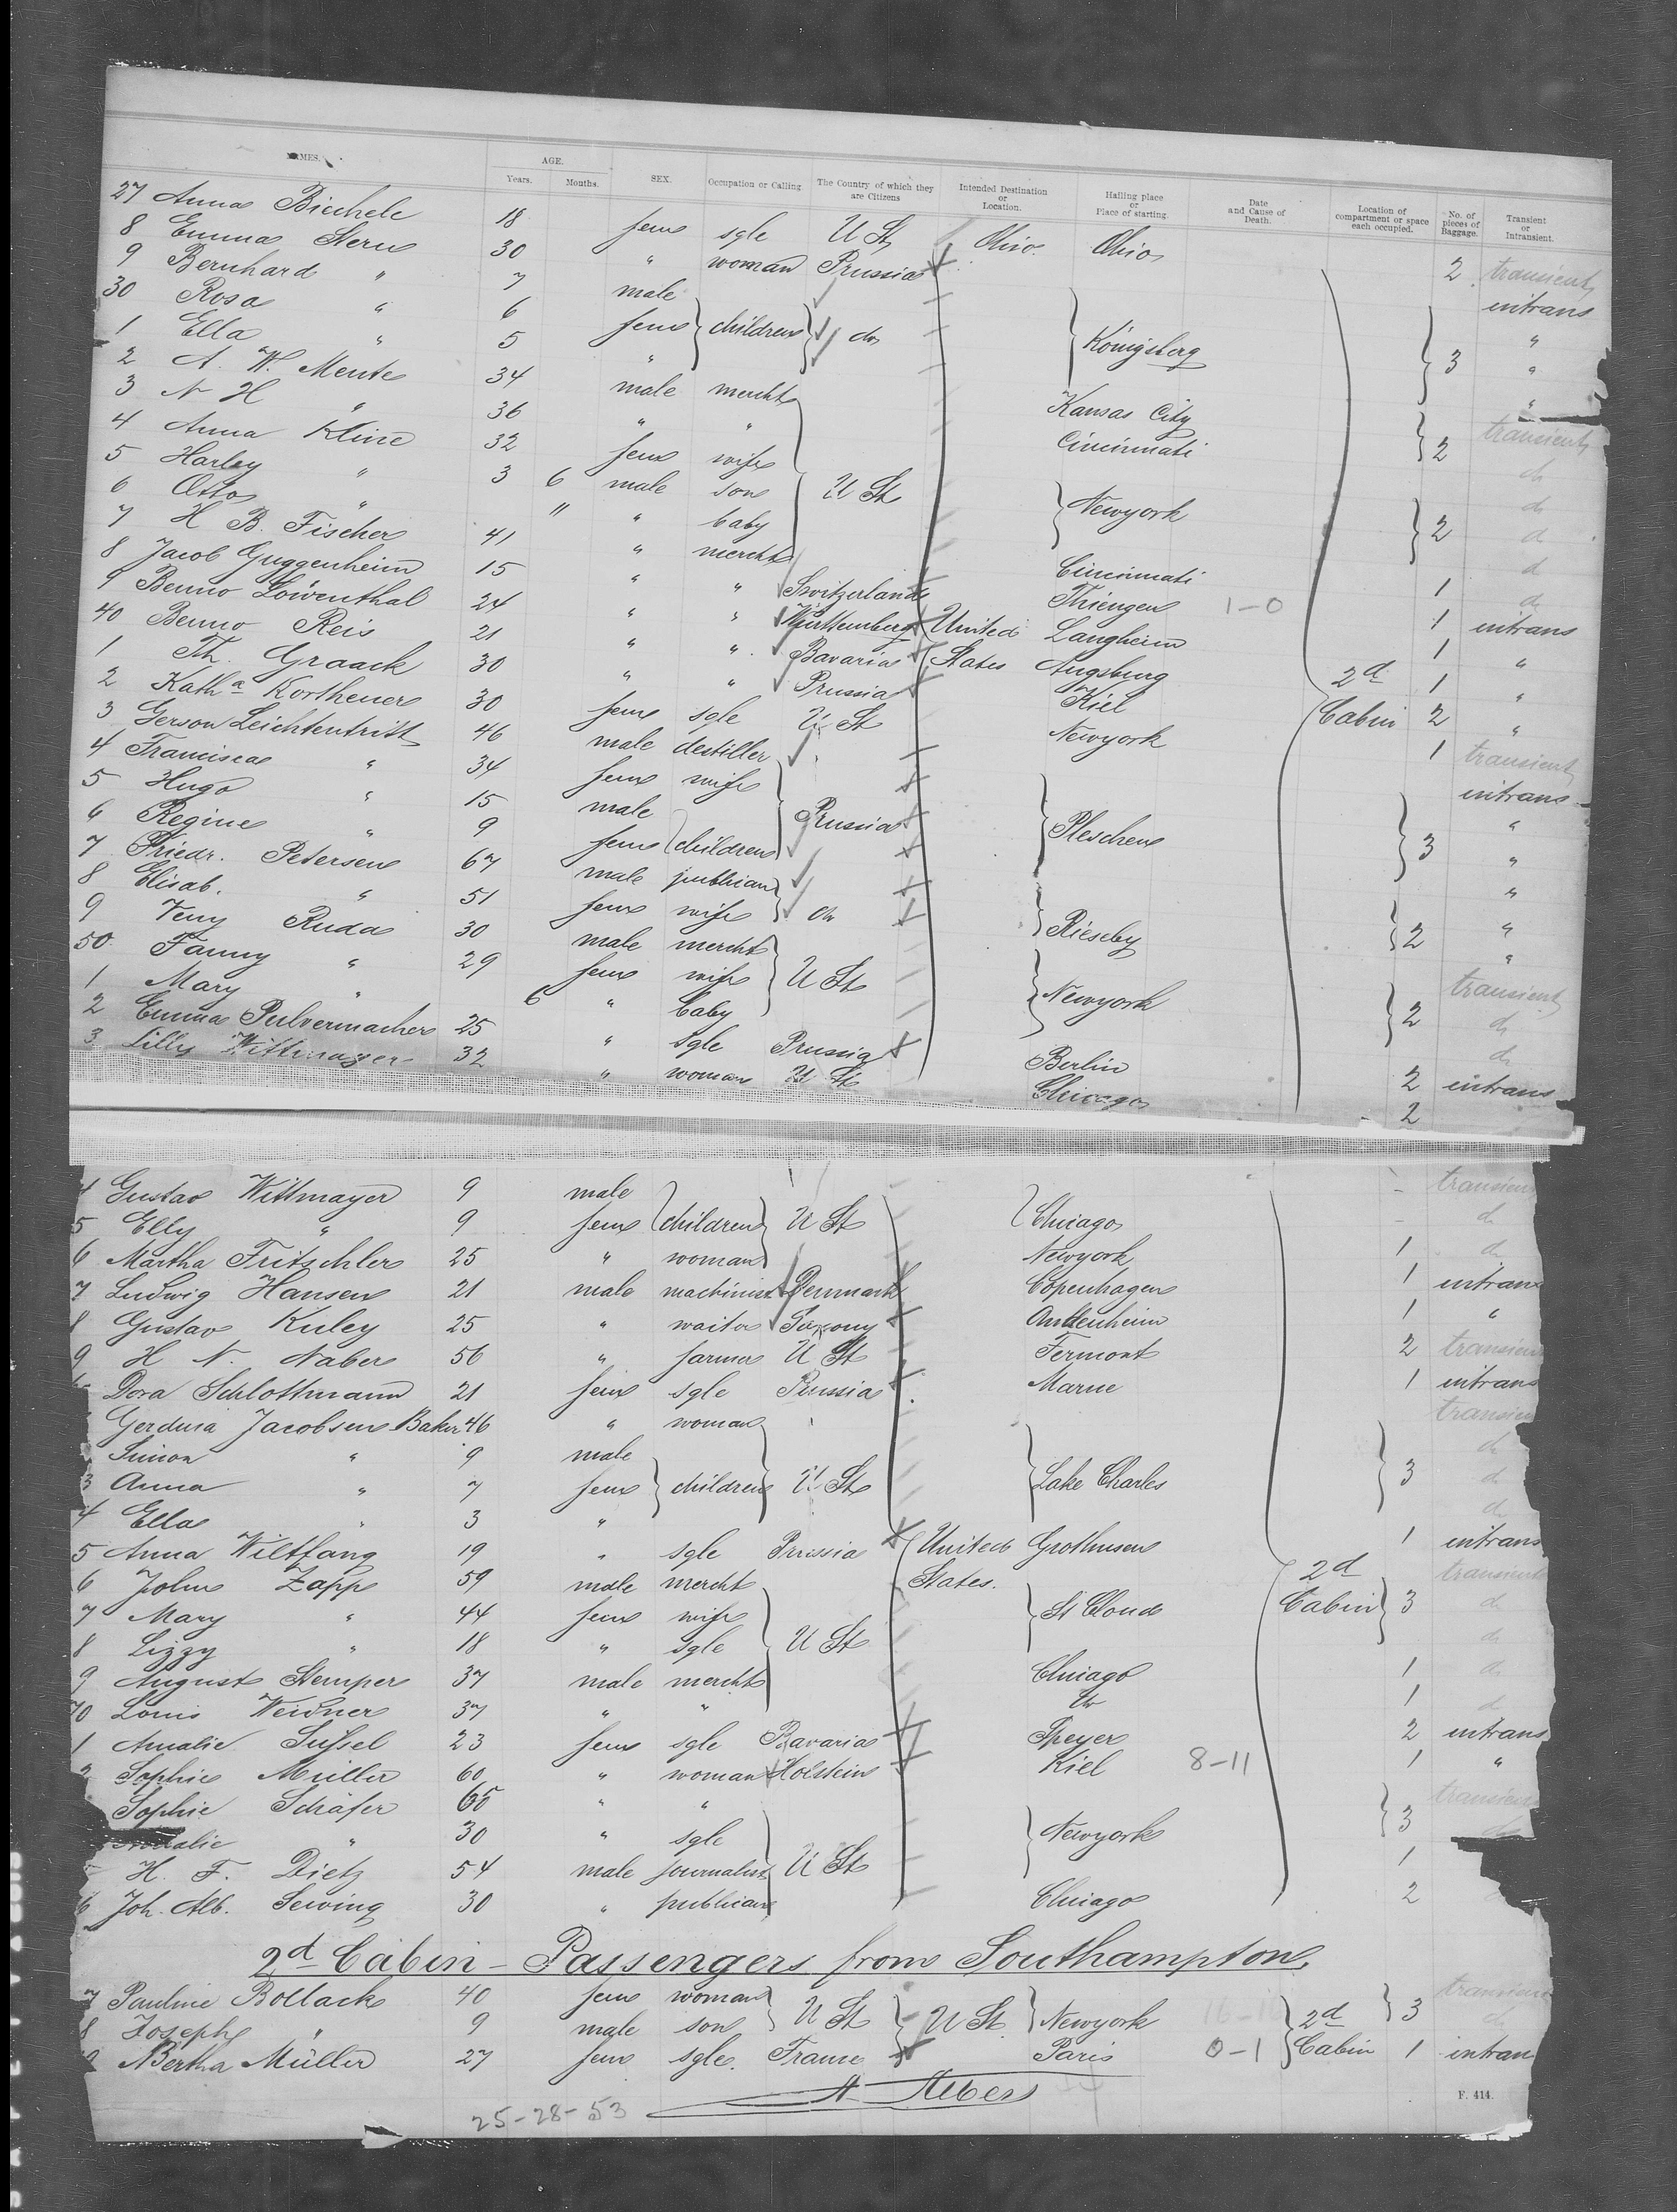 NAMES. AGE. Years. Months. SEX. Occupation or Calling The Country of which they are Citizens Intended Destination or Location. Hailing place or Place of starting. Date and Cause of Death. Location of compartment or space each occupied. No. of pieces of Baggage. Transient or Intransient.
27 Anna Biechele 18 fem sgle U St Ohio Ohio 2 transient
8 Emma Stern 30 " woman Prussia intrans
9 Bernhard " 7 male "
30 Rosa " 6 fem children do Königsberg 3 "
1 Ella " 5 " "
2 A. W. Mente 34 male mercht Kansas City transient
3 N H " 36 " " Cincinnati 2 do
4 Anna Kline 32 fem wife do
5 Harley " 3 6 male son U St Newyork 2 do
6 Otto " 11 " baby do
7 H B. Fischer 41 " mercht Cincinnati 1 do
8 Jacob Guggenheim 15 " " Switzerland Thiengen 1-0 1 intrans
9 Benno Löwenthal 24 " " Württemberg United Langheim 1 "
40 Benno Reis 21 " " Bavaria States Augsburg 2d 1 "
1 Th. Graack 30 " " Prussia Kiel Cabin 2 "
2 Kath a Kortheuer 30 fem sgle U. St Newyork 1 transient
3 Gerson Leichtentritt 46 male destiller intrans
4 Francisca " 34 fem wife "
5 Hugo " 15 male Prussia Pleschen 3 "
6 Regine " 9 fem children "
7 Friedr. Petersen 67 male publican "
8 Elisab. " 51 fem wife do Rieseby 2 "
9 Veny Ruda 30 male mercht transient
50 Fanny " 29 fem wife U St Newyork 2 do
1 Mary " 6 " baby do
2 Emma Pulvermacher 25 " sgle Prussia Berlin 2 intrans
3 Lilly Wittmayer 32 " woman U St Chicago 2
4 Gustav Wittmayer 9 male - transient
5 Elly " 9 fem children U St Chicago - do
6 Martha Fritschler 25 " woman Newyork 1 do
7 Ludwig Hansen 21 male machinist Denmark Copenhagen 1 intrans
8 Gustav Kuley 25 " waiter Saxony 1 "
9 H N. Naber 56 " farmer U St Fermont 2 transient
Dora Schlottmann 21 fem sgle Prussia Marne 1 intrans
Gerdura Jacobsen Baker 46 " woman transient
Simon " 9 male do
3 Anna " 7 fem children U. St Lake Charles 3 do
4 Ella " 3 " do
5 Anna Wiltfang 19 " sgle Prussia United Grothusen 1 intrans
6 John Zapp 59 male mercht States. 2d transient
7 Mary " 44 fem wife St Cloud Cabin 3 do
8 Lizzy " 18 " sgle U St do
9 August Stemper 37 male mercht Chicago 1 do
70 Louis Weidner 37 " " do 1 do
1 Amalie Süssel 23 fem sgle Bavaria Speyer 2 intrans
2 Sophie Müller 60 " woman Holstein Kiel 8-11 1 "
Sophie Schäfer 65 " " transient
" 30 " sgle Newyork 3 do
H. F. Dietz 54 male journalist U St 1
6 Joh. Alb. Sewing 30 " publican Chicago 2
2d Cabin - Passengers from Southampton
7 Pauline Bollack 40 fem woman transient
8 Joseph " 9 male son U St U St. Newyork 2d 3 do
9 Bertha Müller 27 fem sgle. France Paris 0-1 Cabin 1 intran
A Albers
25-28-53
F. 414.